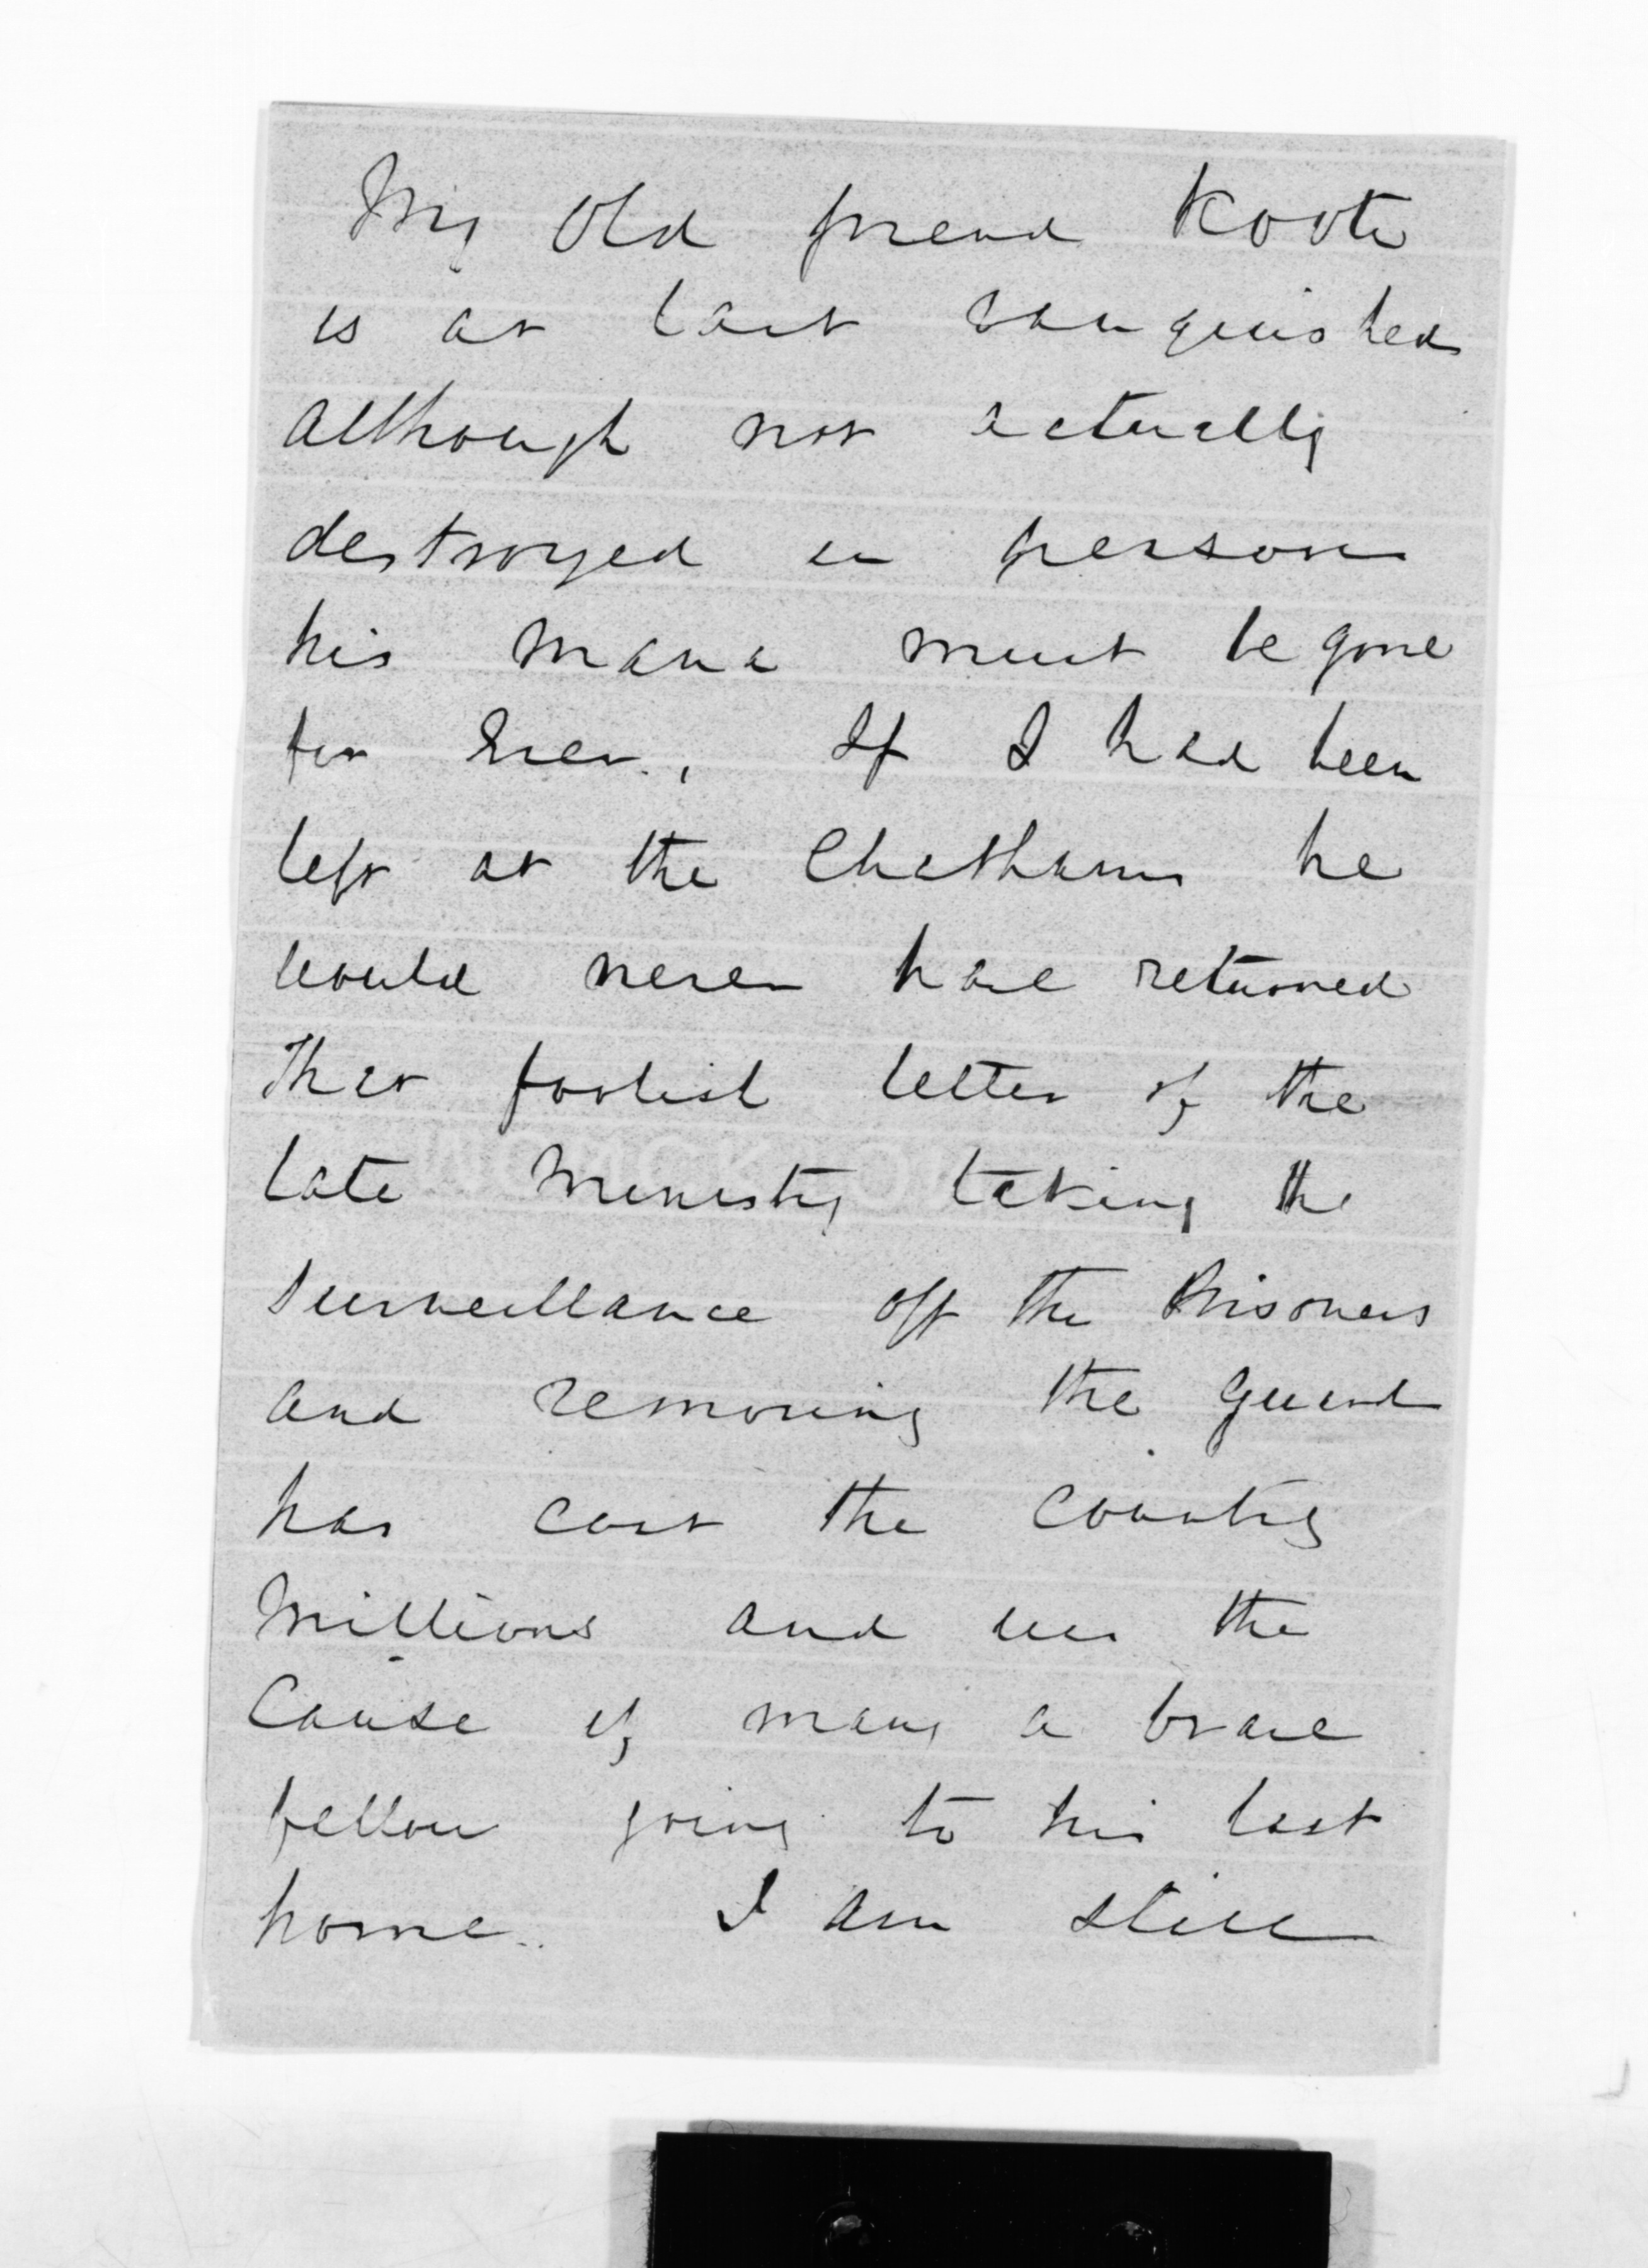 My Old friend Kooti
is at last vanquished
although not actually
destroyed in person
his mana must be gone
for Ever. If I had been
left at the Chathams he
would never have returned
That foolish letter of the
late Ministry taking the
Surveillance off the Prisoners
and removing the Guard
has cost the Country
Millions and
the
Cause of many a brave
fellow going to his last
home. I am still